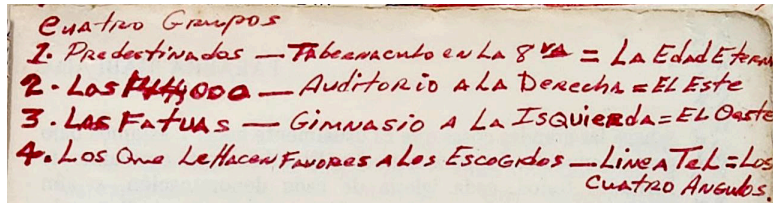 Cuatro Grupos
1. Predestinados — Tabernaculo en La 8va = La Edad Etern
2. Los 144,000 — Auditorio A La Derecha = El Este
3. Las Fatuas — Gimnasio A La Isquierda = El Oeste
4. Los Que Le Hacen Favores A Los Escogidos — Linea Tel = Los
Cuatro Angulos.